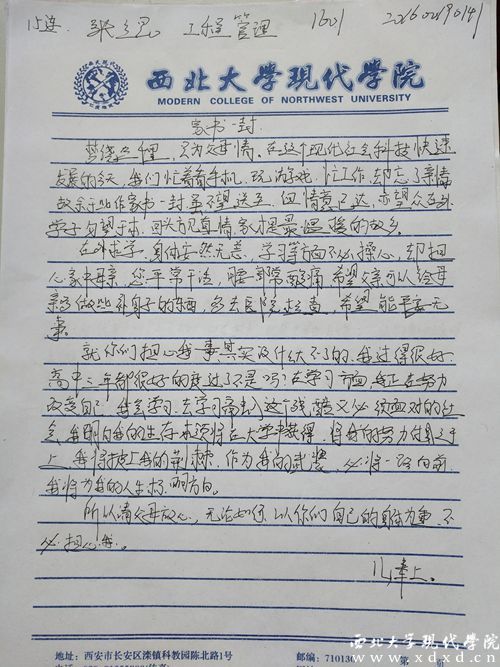 15连 张 工程管理 1601 201602190141
西北大学现代学院
MODERN COLLEGE OF NORTHWEST UNIVERSITY
家书一封
梦绕 里，只为父母情。在这个现代社会科技快速
发展的今天，我们忙着看手机，玩游戏，忙工作却忘了亲情
故余于此作家书一封 不望送至，但情意已达，亦望众
学子 回头方见真情家才是最温暖的故乡。
在外求学，身体安然无恙，学习等方面不必操心，却担
心家中母亲，您平常干活，腰部常 痛希望父亲可以给母
亲多做些补身子的东西，多去医院检查，希望能平安无
事。
就你们担心我事其实没什么大不了的，我过得很好，
高中三年都很好的度过了不是吗？在学习方面，我正在努力
改变自己，我会学习去学习 这个残酷又必须面对的社
会，我明白我的生存本领将在大学中获得，将我的努力付之于
上，我将披上我的荆棘，作为我的武装，必将一路向前
我将为我的人生 。
所以请父母放心，无论如何，以你们自己的身体为重，不
必担心我。
儿奉上。
地址：西安市长安区滦镇科教园陈北路1号
邮编：71010
西北大学现代学院
www.xdxd.cn